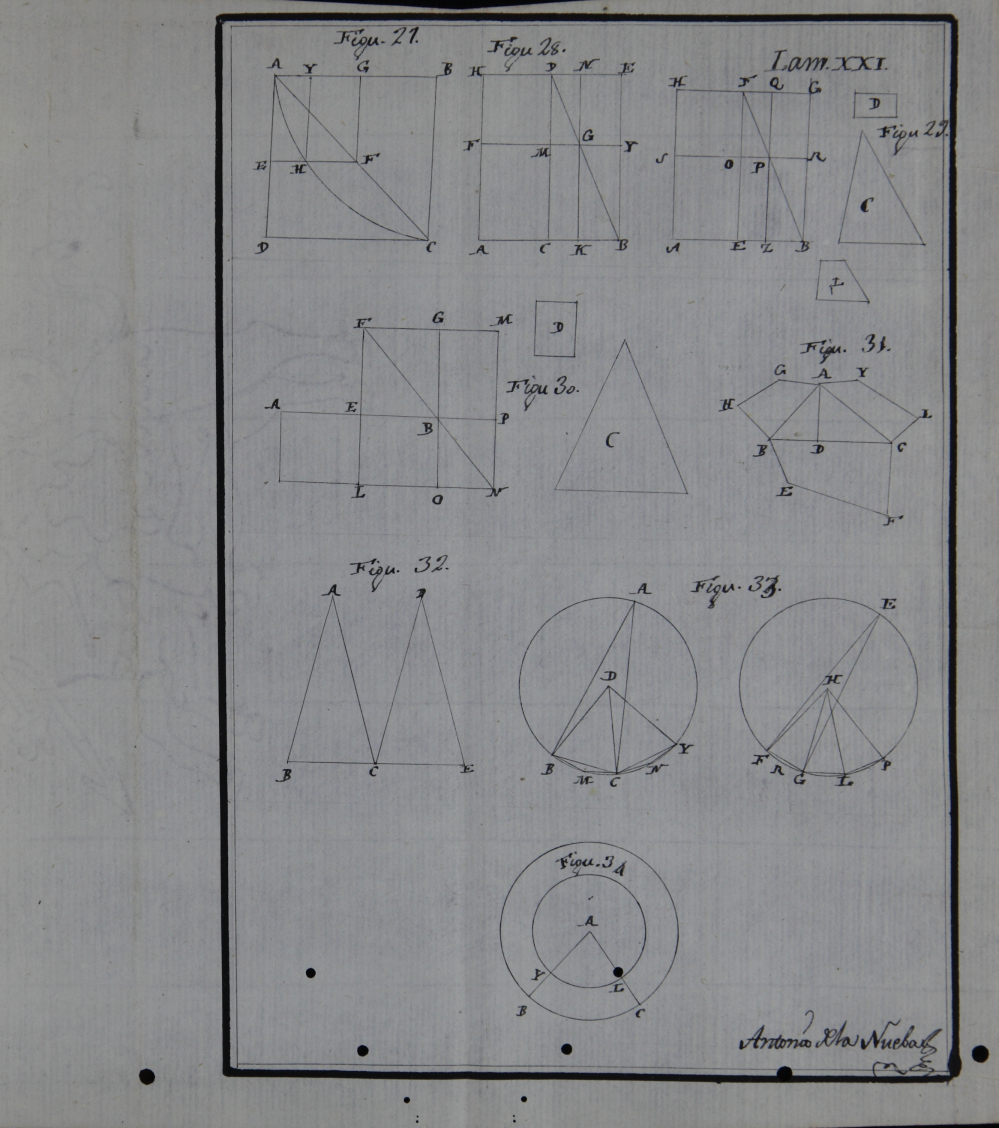 Lam. XXI.
Figu. 27.
A Y G B
E H F
D C
Figu 28.
H D N E
F M G Y
A C K B
H F Q G
S O P R
A E Z B
D
Figu 29.
C
F G M
A E B P
L O N
D
Figu 30.
C
Figu. 31.
G A Y
H L
B D C
E
F
Figu. 32.
A D
B C E
Figu. 33.
A
D
B M C N Y
E
H
F R G L P
Figu. 34
A
Y L
B C
Antonio de la Nueba